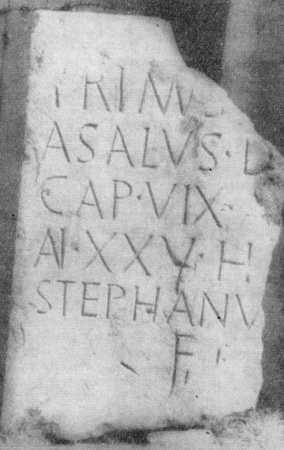 PRIMVS
ASALVS · D
CAP · VIX ·
AN · XXV · H
STEPHANV
F ·